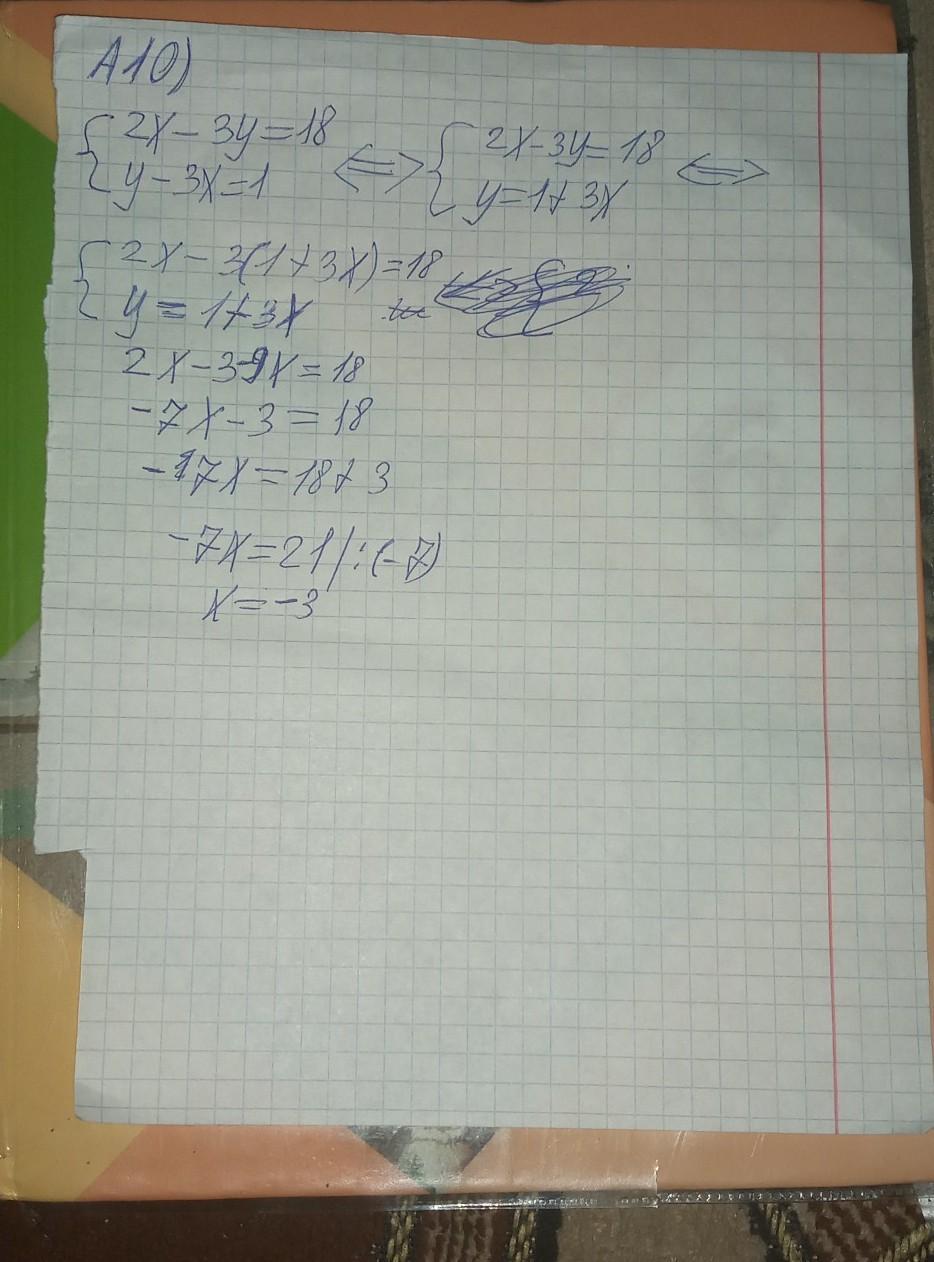 A10)
{2x-3y=18 <=> {2x-3y=18 <=>
y-3x=1 y=1+3x
{2x-3(1+3x)=18
y=1+3x
2x-3-9x=18
-7x-3=18
-7x=18+3
-7x=21 |:(-7)
x=-3